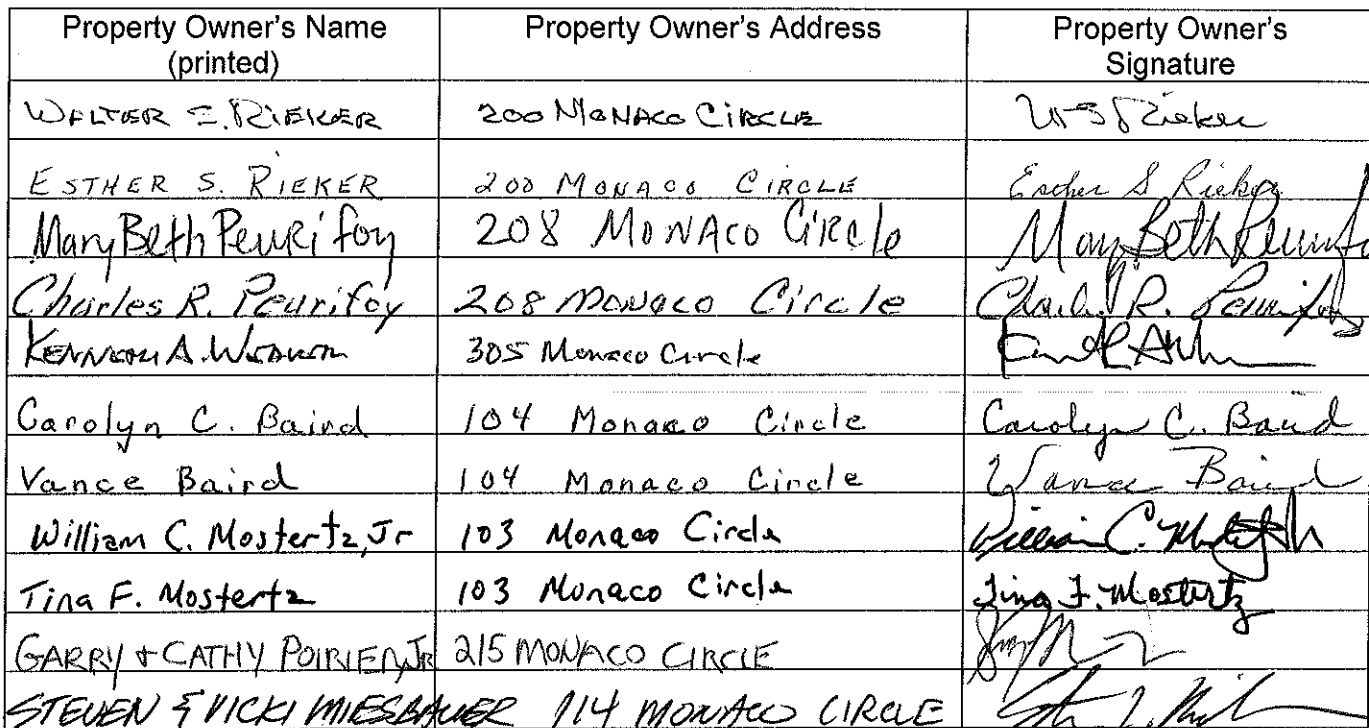 Property Owner's Name Property Owner's Address Property Owner's
(printed) Signature
WALTER E. RIEKER 200 MONACO CIRCLE W E Rieker
ESTHER S. RIEKER 200 MONACO CIRCLE Esther S Rieker
Mary Beth PeuRifoy 208 MONACO CIRCle Mary Beth Peurifoy
Charles R. Peurifoy 208 MONACO Circle Charles R. Peurifoy
KENNETH A. 305 Monaco Circle
Carolyn C. Baird 104 Monaco Circle Carolyn C. Baird
Vance Baird 104 Monaco Circle Vance Baird
William C. Mostertz, Jr 103 Monaco Circle William C.
Tina F. Mostertz 103 Monaco Circle Tina F. Mostertz
GARRY & CATHY POIRIER, JR 215 MONACO CIRCLE
STEVEN & VICKI MIESBAUER 114 MONACO CIRCLE